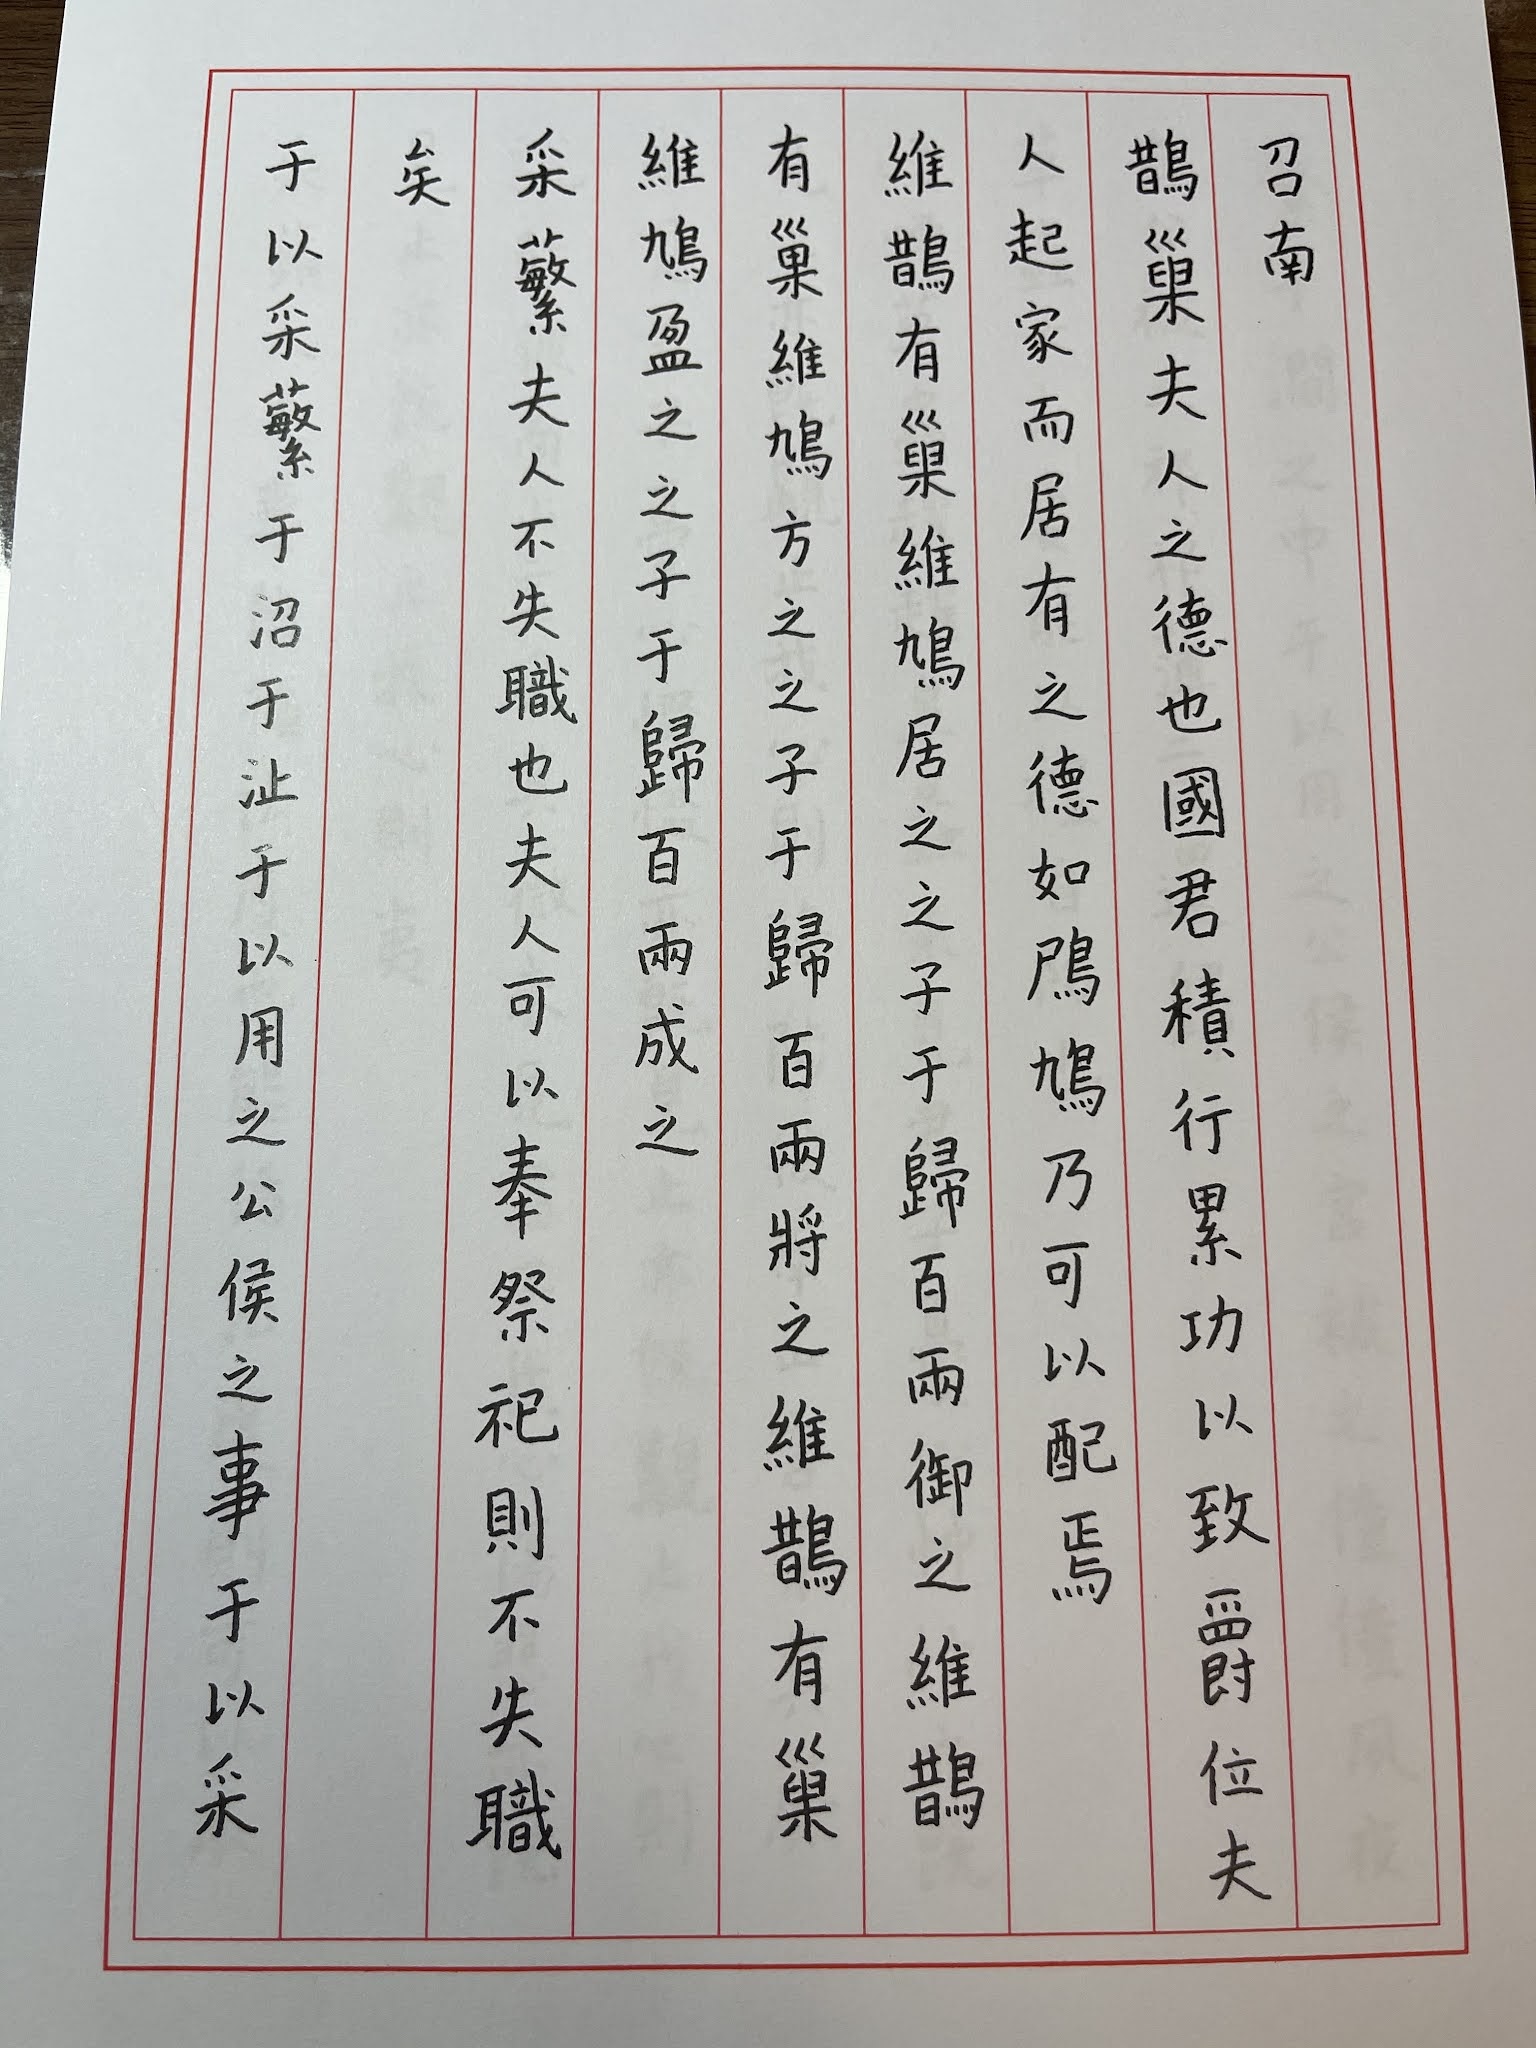 召南
鵲巢夫人之德也國君積行累功以致爵位夫
人起家而居有之德如鳲鳩乃可以配焉
維鵲有巢維鳩居之之子于歸百兩御之維鵲
有巢維鳩方之之子于歸百兩將之維鵲有巢
維鳩盈之之子于歸百兩成之
采蘩夫人不失職也夫人可以奉祭祀則不失職
矣
于以采蘩于沼于沚于以用之公侯之事于以采